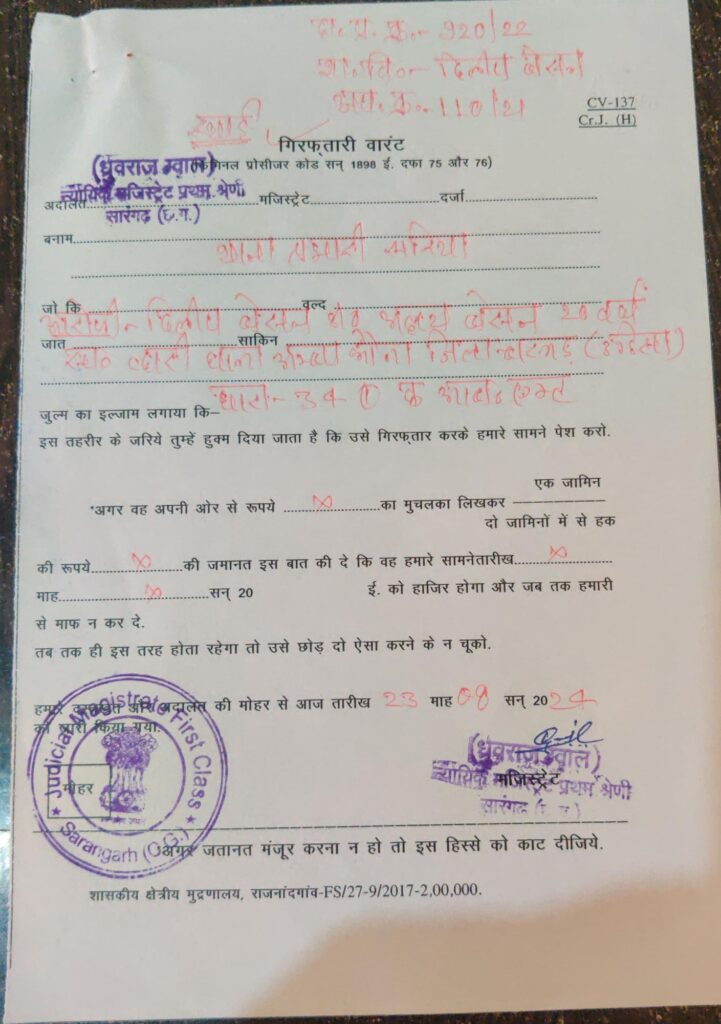 दा. प्र. क्र.- 920/22
शा. वि.- दिलीप
अप. क्र.- 110/21
स्थाई
CV-137
Cr.J. (H)
गिरफ्तारी वारंट
(ध्रुवराज ग्वाल)
प्रोसीजर कोड सन् 1898 ई. दफा 75 और 76)
न्यायिक मजिस्ट्रेट प्रथम श्रेणी
सारंगढ़ (छ.ग.)
अदालत मजिस्ट्रेट दर्जा
बनाम
थाना प्रभारी सरिया
जो कि वल्द
आरोपी- दिलीप 20 वर्ष
जात साकिन
थाना जिला
धारा- 34 क
जुल्म का इल्जाम लगाया कि–
इस तहरीर के जरिये तुम्हें हुक्म दिया जाता है कि उसे गिरफ्तार करके हमारे सामने पेश करो.
एक जामिन
*अगर वह अपनी ओर से रूपये × का मुचलका लिखकर
दो जामिनों में से हक
की रूपये × की जमानत इस बात की दे कि वह हमारे सामनेतारीख ×
माह × सन् 20 ई. को हाजिर होगा और जब तक हमारी
से माफ न कर दे.
तब तक ही इस तरह होता रहेगा तो उसे छोड़ दो ऐसा करने के न चूको.
हमारे दस्तखत और अदालत की मोहर से आज तारीख 23 माह 08 सन् 2024
को जारी किया गया.
Judicial Magistrate First Class
Sarangarh (C.G.)
मोहर
(ध्रुवराज ग्वाल)
मजिस्ट्रेट
न्यायिक मजिस्ट्रेट प्रथम श्रेणी
सारंगढ़ (छ.ग.)
अगर जतानत मंजूर करना न हो तो इस हिस्से को काट दीजिये.
शासकीय क्षेत्रीय मुद्रणालय, राजनांदगांव-FS/27-9/2017-2,00,000.